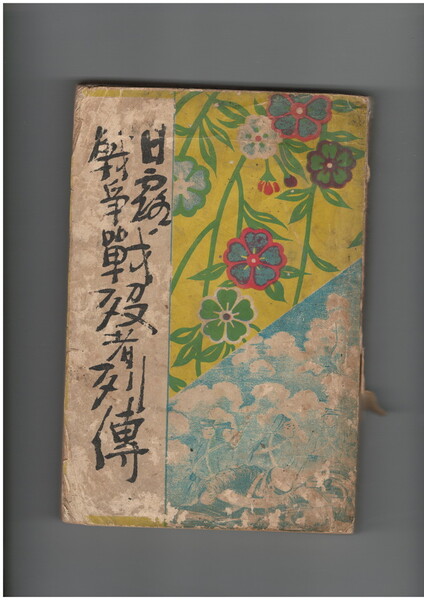 日露
戰爭
戰歿者列傳